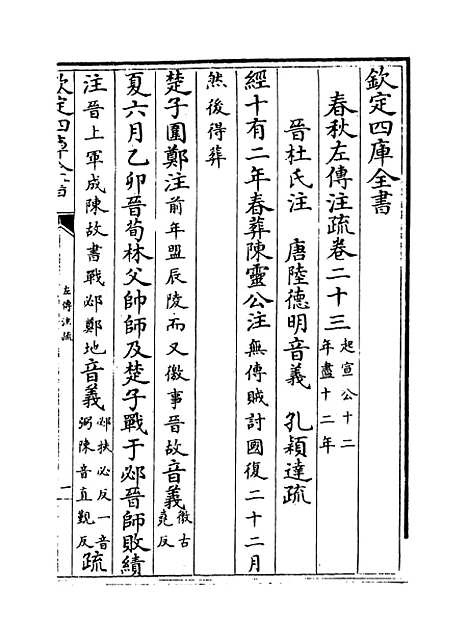 欽定四庫全書
春秋左傳注疏卷二十三起宣公十二年盡十二年
晉杜氏注 唐陸德明音義 孔穎達疏
經十有二年春葬陳靈公注無傳賊討國復二十二月
然後得葬
楚子圍鄭注前年盟辰陵而又徼事晉故音義徼古堯反
夏六月乙卯晉荀林父帥師及楚子戰于邲晉師敗績
注晉上軍成陳故書戰邲鄭地音義邲扶必反一音弼陳音直覲反疏
欽定四庫全書
左傳注疏
一